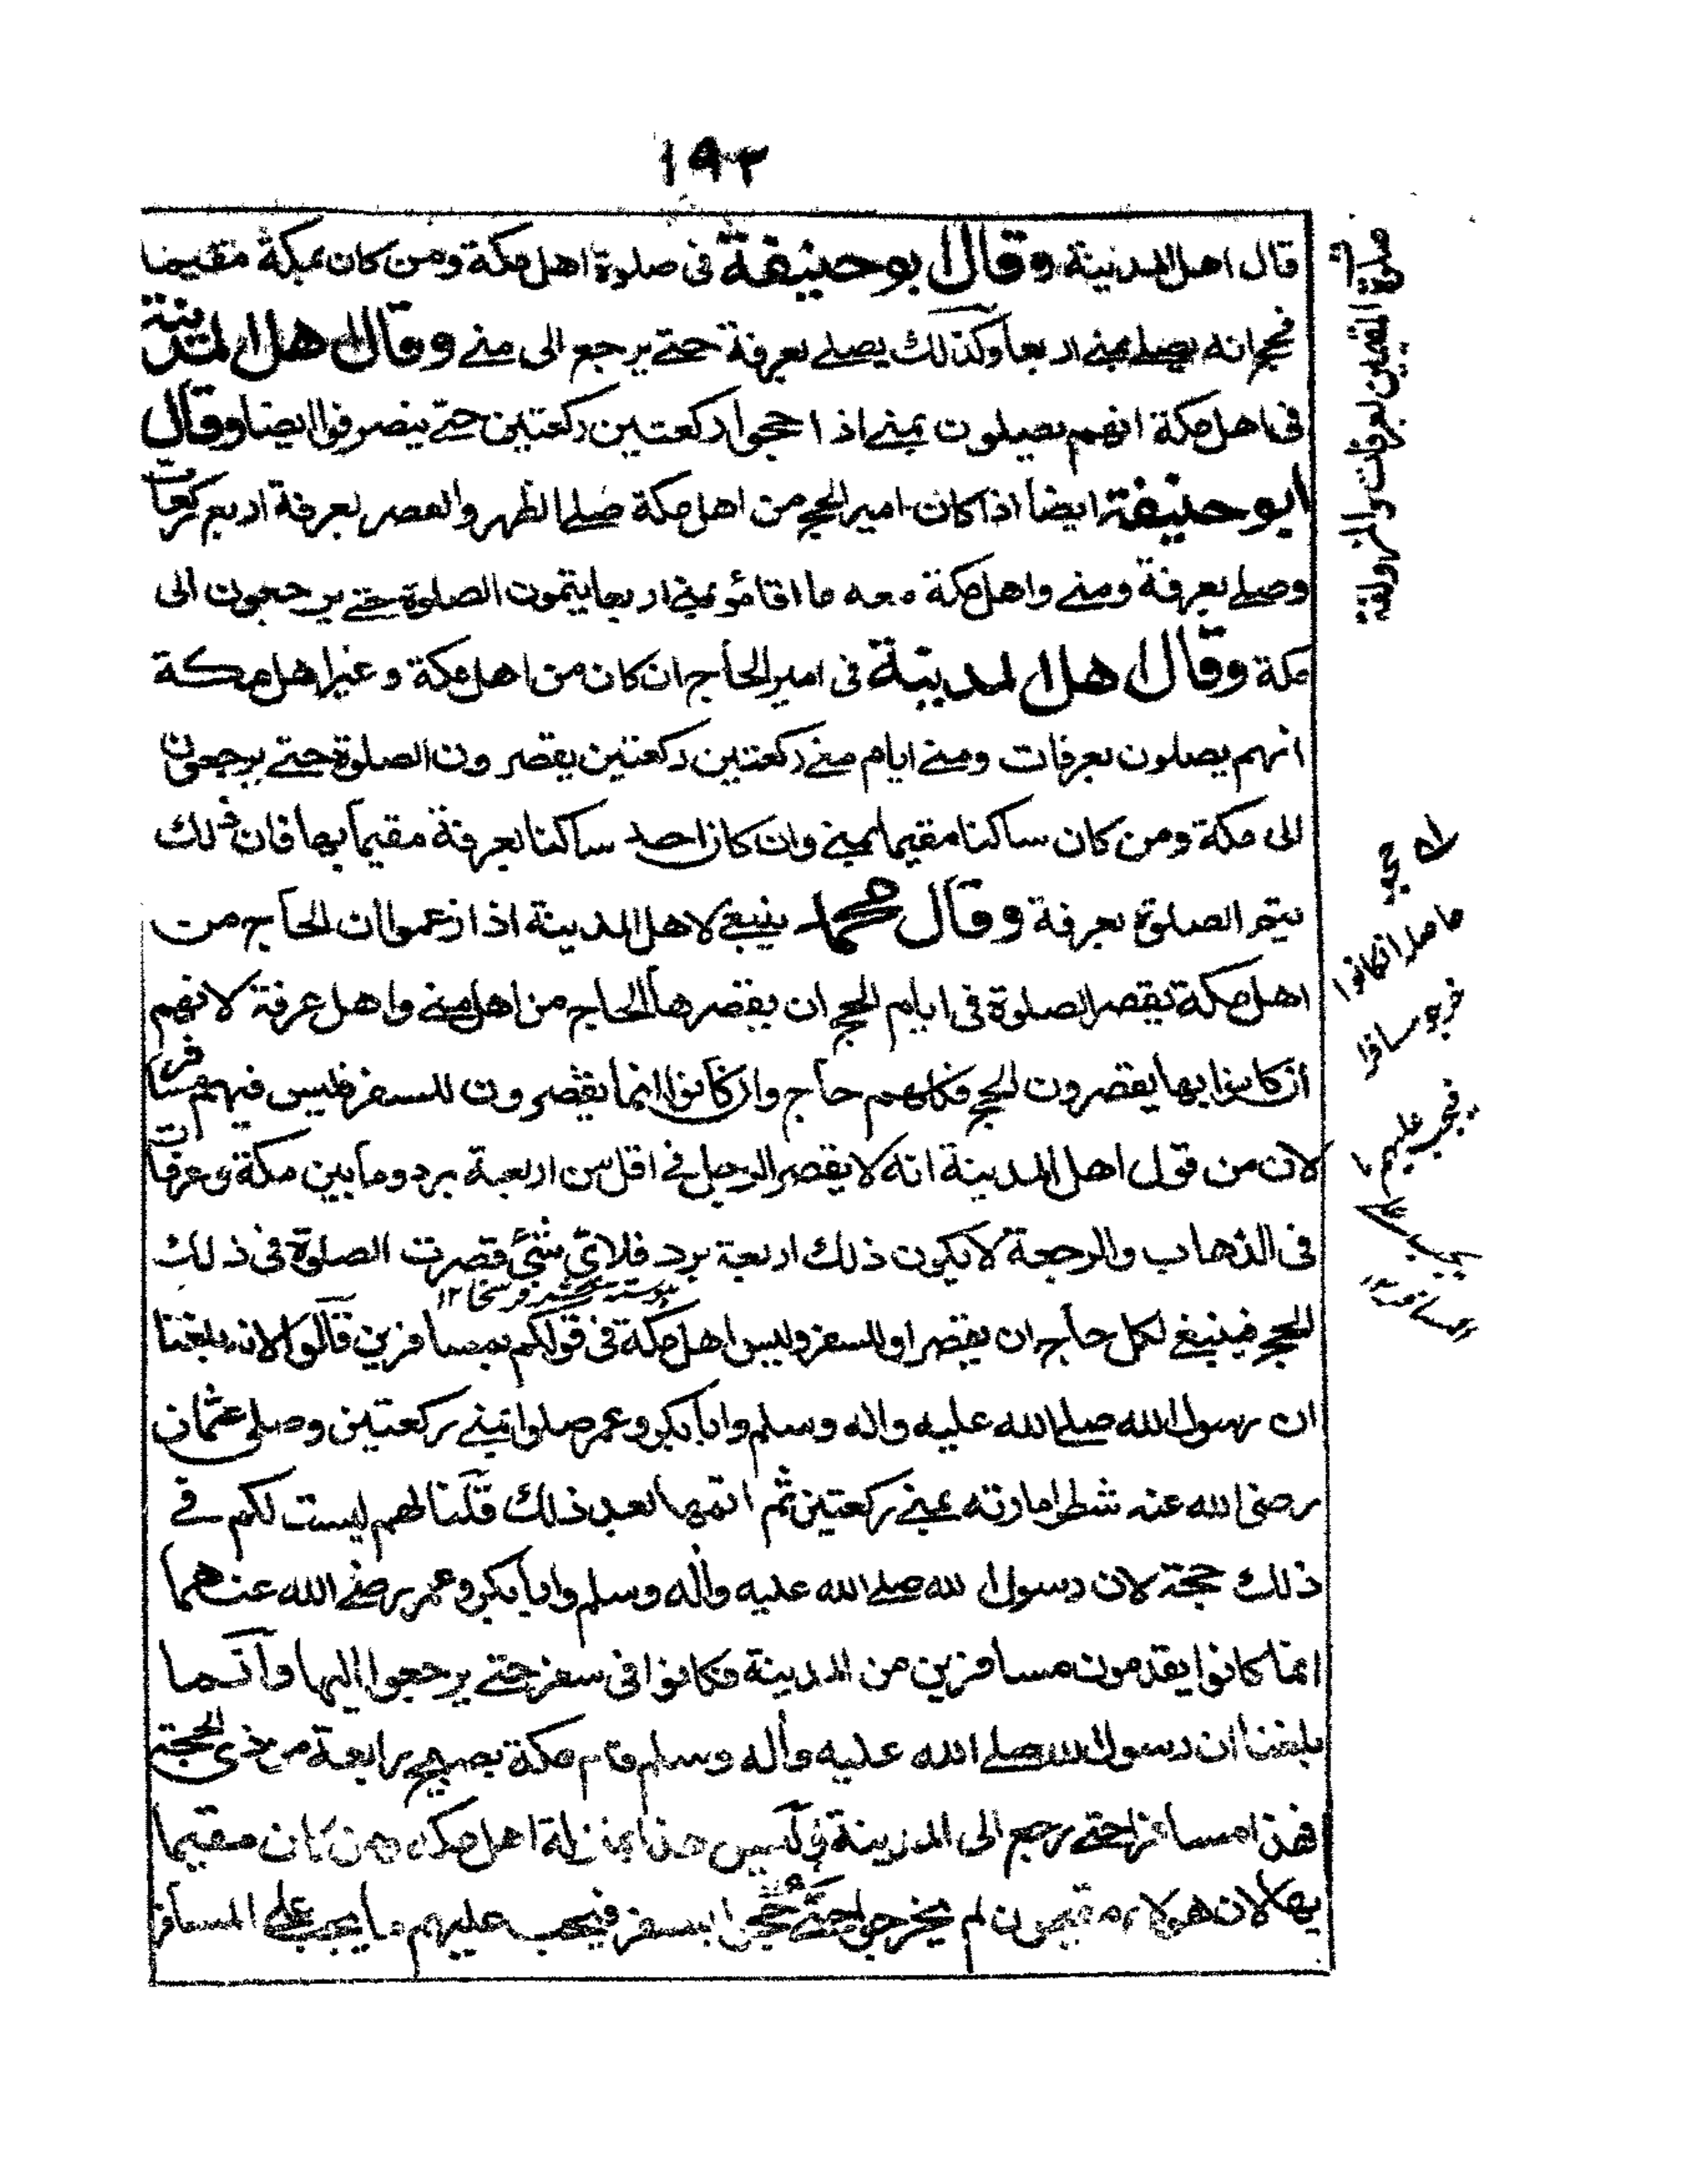 ١٩٢
قال اهل المدينة وقال ابو حنيفة فى صلوة اهل مكة ومن كان بمكة مقيما
فحج انه يصلے بمنے اربعا وكذلك يصلے بعرفة حتے يرجع الى منے وقال اهل المدينة
فى اهل مكة انهم يصلون بمنے اذا حجوا ركعتين ركعتين حتے ينصرفوا ايضا وقال
ابو حنيفة ايضا اذا كان امير الحج من اهل مكة صلے الظهر والعصر بعرفة اربع ركعات
وصلے بعرفة ومنے واهل مكة معه ما اقاموا بمنے اربعا يتمون الصلوة حتے يرجعون الى
مكة وقال اهل المدينة فى امير الحاج ان كان من اهل مكة وغير اهل مكة
انهم يصلون بعرفات ومنے ايام منے ركعتين ركعتين يقصرون الصلوة حتے يرجعون
الى مكة ومن كان ساكنا مقيما بمنے وان كان احد ساكنا بعرفة مقيما بها فان ذلك
يتم الصلوة بعرفة وقال محمد ينبغے لاهل المدينة اذا زعموا ان الحاج من
اهل مكة يقصر الصلوة فى ايام الحج ان يقصرها الحاج من اهل منے واهل عرفة لانهم
ان كانوا بها يقصرون للحج فكلهم حاج وان كانوا انما يقصرون للسفر فليس فيهم مسافر
لان من قول اهل المدينة انه لا يقصر الرجل فے اقل من اربعة برد وما بين مكة وعرفات
فى الذهاب والرجعة لا يكون ذلك اربعة برد فلاى شئ قصرت الصلوة فى ذلك
للحج فينبغے لكل حاج ان يقصر او للسفر وليس اهل مكة فى قولكم بمسافرين قالوا لانه بلغنا
ان رسول الله صلے الله عليه واله وسلم وابا بكر وعمر صلوا بمنے ركعتين وصلى عثمان
رضى الله عنه شطر امارته بمنے ركعتين ثم اتمها بعد ذلك قلنا لهم ليست لكم فے
ذلك حجة لان رسول الله صلے الله عليه واله وسلم وابا بكر وعمر رضے الله عنهما
انما كانوا يقدمون مسافرين من المدينة فكانوا فى سفر حتے يرجعوا اليها وانما
بلغنا ان رسول الله صلے الله عليه واله وسلم قدم مكة بصبح رابعة من ذى الحجة
فهذا مسافر احتے رجع الى المدينة وليس هذا بمنزلة اهل مكة ومن كان مقيما
بها لان هولاء مقيمون لم يخرجوا حتے حجوا بسفر فيجب عليهم ما يجب علے المسافر
صلوة المقيمين بعرفات والمزدلفة
خرجو مسافرا
فيجب عليهم ما
يجب علے
المسافر ١٢